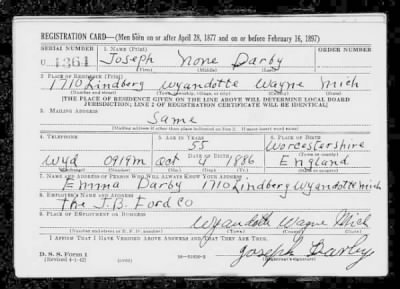 REGISTRATION CARD—(Men born on or after April 28, 1877 and on or before February 16, 1897)
SERIAL NUMBER 1. NAME (Print) ORDER NUMBER
U 1364 Joseph None Darby
(First) (Middle) (Last)
2. PLACE OF RESIDENCE (Print)
1710 Lindberg Wyandotte Wayne Mich
(Number and street) (Town, township, village, or city) (County) (State)
[THE PLACE OF RESIDENCE GIVEN ON THE LINE ABOVE WILL DETERMINE LOCAL BOARD
JURISDICTION; LINE 2 OF REGISTRATION CERTIFICATE WILL BE IDENTICAL]
3. MAILING ADDRESS
Same
[Mailing address if other than place indicated on line 2. If same insert word same]
4. TELEPHONE 5. AGE IN YEARS 6. PLACE OF BIRTH
55 Worcestershire
DATE OF BIRTH (Town or county)
Wyd 0919M Oct 4 1886 England
(Exchange) (Number) (Mo.) (Day) (Yr.) (State or country)
7. NAME AND ADDRESS OF PERSON WHO WILL ALWAYS KNOW YOUR ADDRESS
Emma Darby 1710 Lindberg Wyandotte Mich
8. EMPLOYER'S NAME AND ADDRESS
The J. B. Ford Co
9. PLACE OF EMPLOYMENT OR BUSINESS
Wyandotte Wayne Mich
(Number and street or R. F. D. number) (Town) (County) (State)
I AFFIRM THAT I HAVE VERIFIED ABOVE ANSWERS AND THAT THEY ARE TRUE.
D. S. S. Form 1
(Revised 4-1-42) (over) Joseph Darby